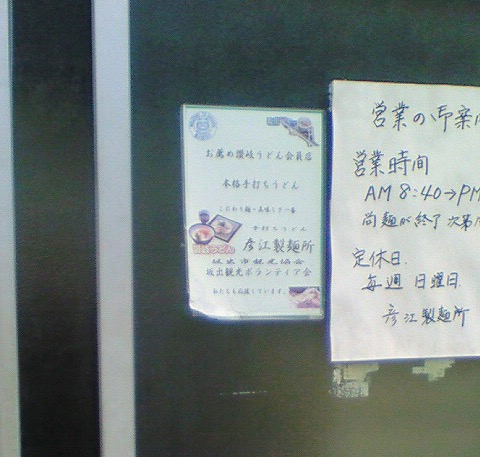 お薦め讃岐うどん会員店
本格手打ちうどん
こだわり麺・美味しさ一番
手打ちうどん
彦江製麺所
坂出市観光協会
坂出観光ボランティア会
わたしも応援しています。
営業の御案内
営業時間
AM 8:40→PM
尚麺が終了次第
定休日
毎週 日曜日
彦江製麺所